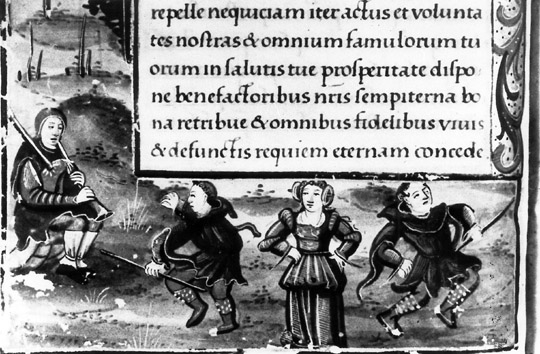 repelle nequiciam iter actus et volunta
tes nostras & omnium famulorum tu
orum in salutis tue prosperitate dispo
ne benefactoribus nr̄is sempiterna bo
na retribue & omnibus fidelibus vivis
& defunctis requiem eternam concede